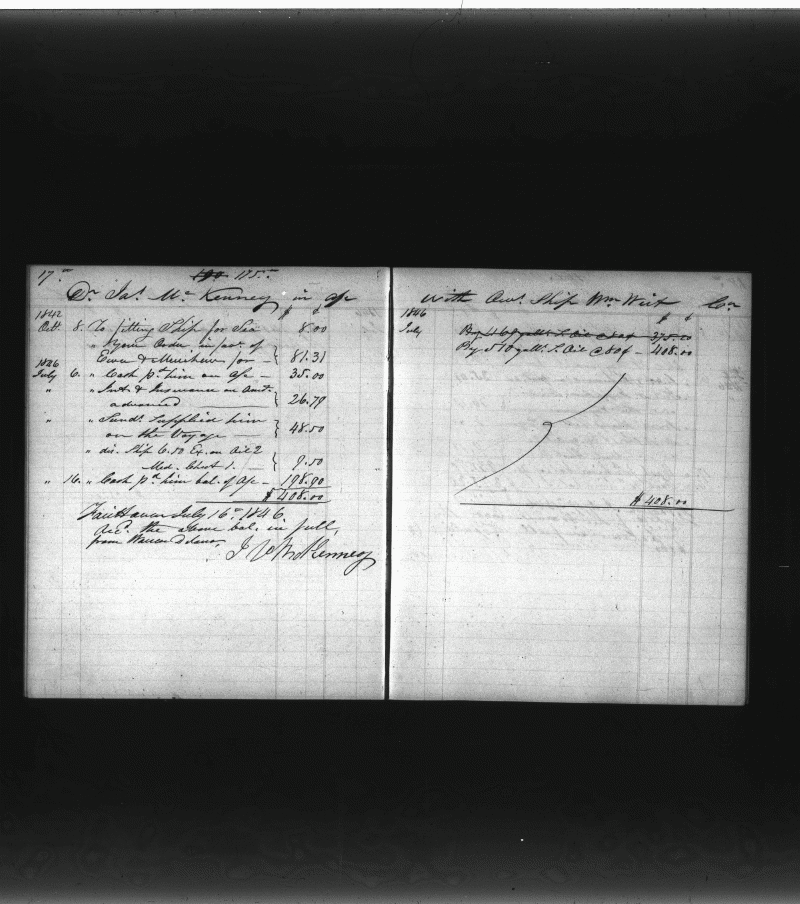 17.
175
Dr Jas. Mc Kenney in a/c
$ ¢
1842
Oct. 8. To fitting Ship for Sea 8.00
" Your Order in fav. of
for — } 81.31
1846
July 6. " Cash pd him on a/c — 35.00
" " Int. & Insurance on Amt.
advanced — } 26.79
" " Sund. Supplied him
on the Voyage — } 48.50
" dis. Ship 6.50 Ex. on Oil 2
Med. Chest 1. — } 9.50
" 16. " Cash pd him bal. of a/c — 198.90
$ 408.00
Fair Haven July 16th 1846
Recd. the above bal. in full,
from Warren Delano,
McKenney
With Ship Wm Wirt Cr
$ ¢
1846
July galls. S. Oil @ 80¢ 375.20
By 510 galls. S. Oil @ 80¢ — 408.00
$ 408.00